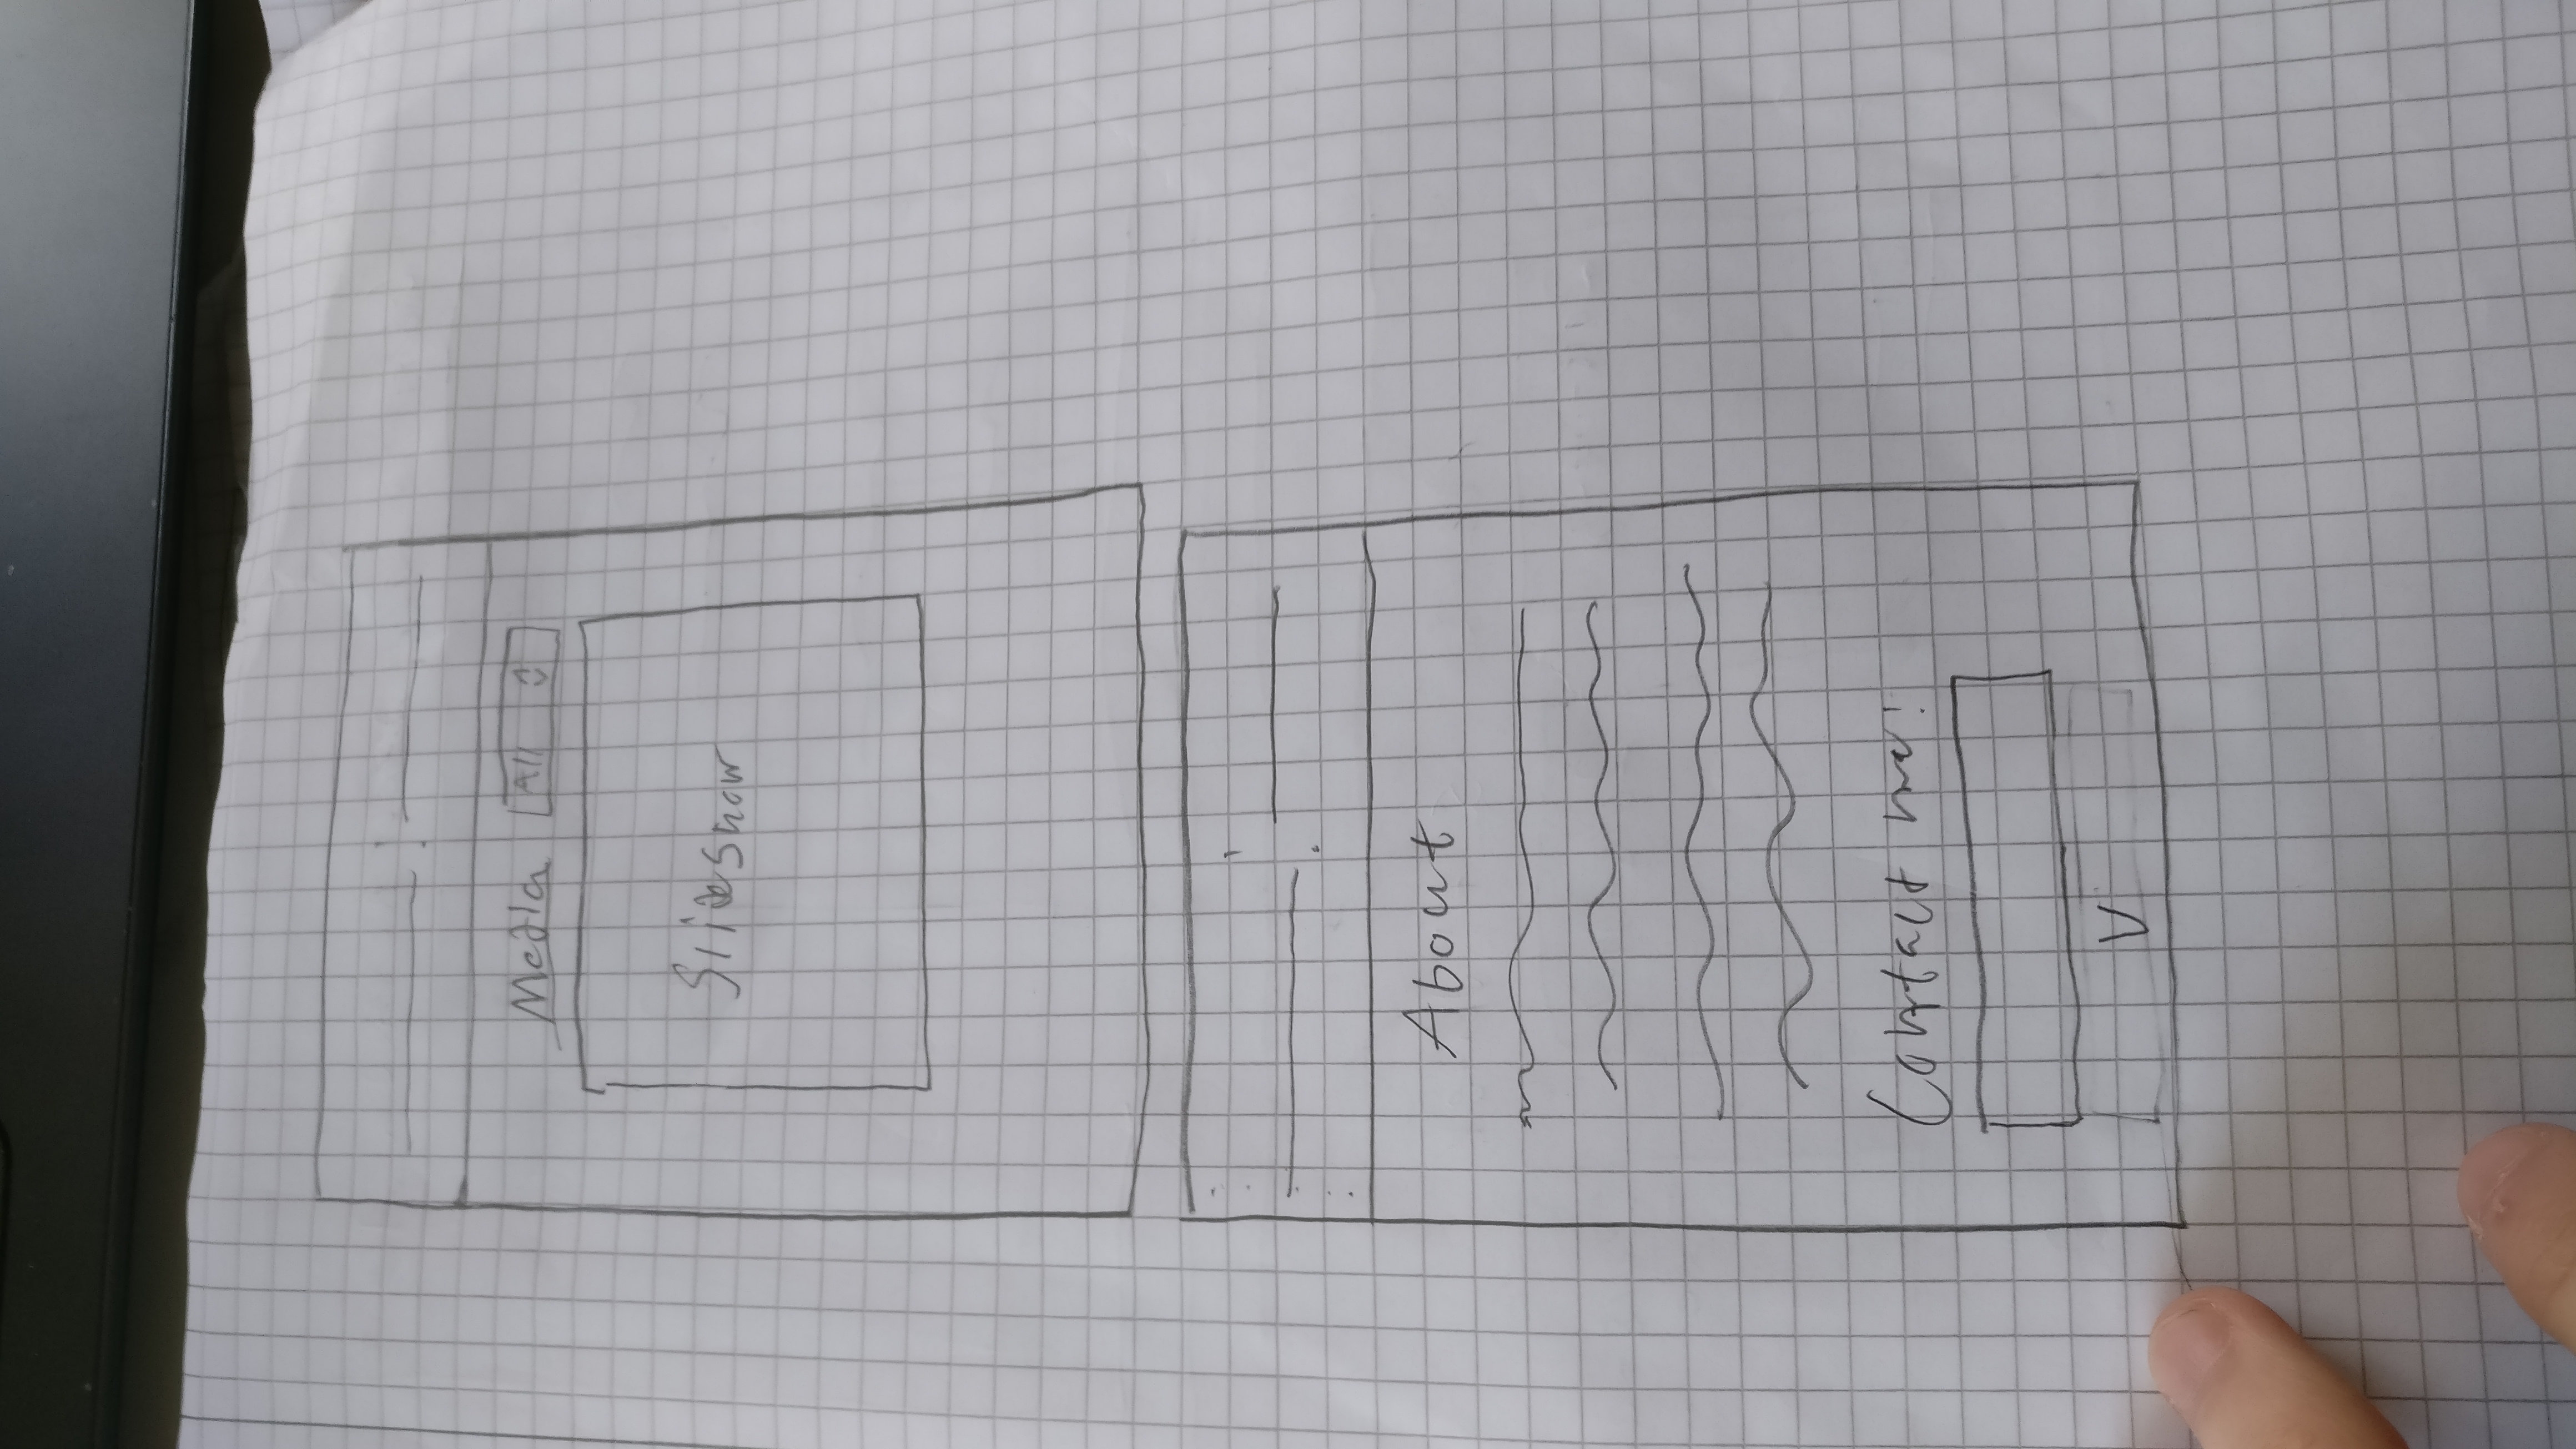 Media All
Slideshow
About
Contact me!
V